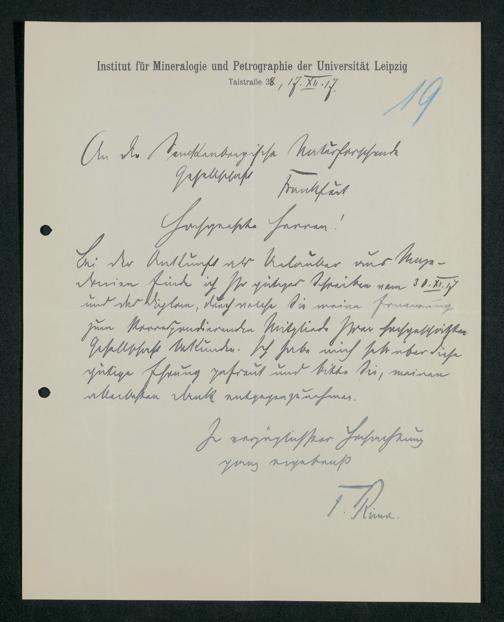 Institut für Mineralogie und Petrographie der Universität Leipzig
Talstraße 38, 17.XII.17.
19
An die Senckenbergische Naturforschende
Gesellschaft Frankfurt
Hochgeehrte Herren!
Bei der Ankunft als Urlauber aus Maze-
donien finde ich Ihr gütiges Schreiben vom 30.XI.17
und das Diplom, durch welche Sie meine Ernennung
zum Korrespondierenden Mitgliede Ihrer hochgeschätzten
Gesellschaft bekunden. Ich habe mich sehr über diese
gütige Ehrung gefreut und bitte Sie, meinen
allerbesten Dank entgegenzunehmen.
In vorzüglichster Hochachtung
ganz ergebenst
F. Rinne.